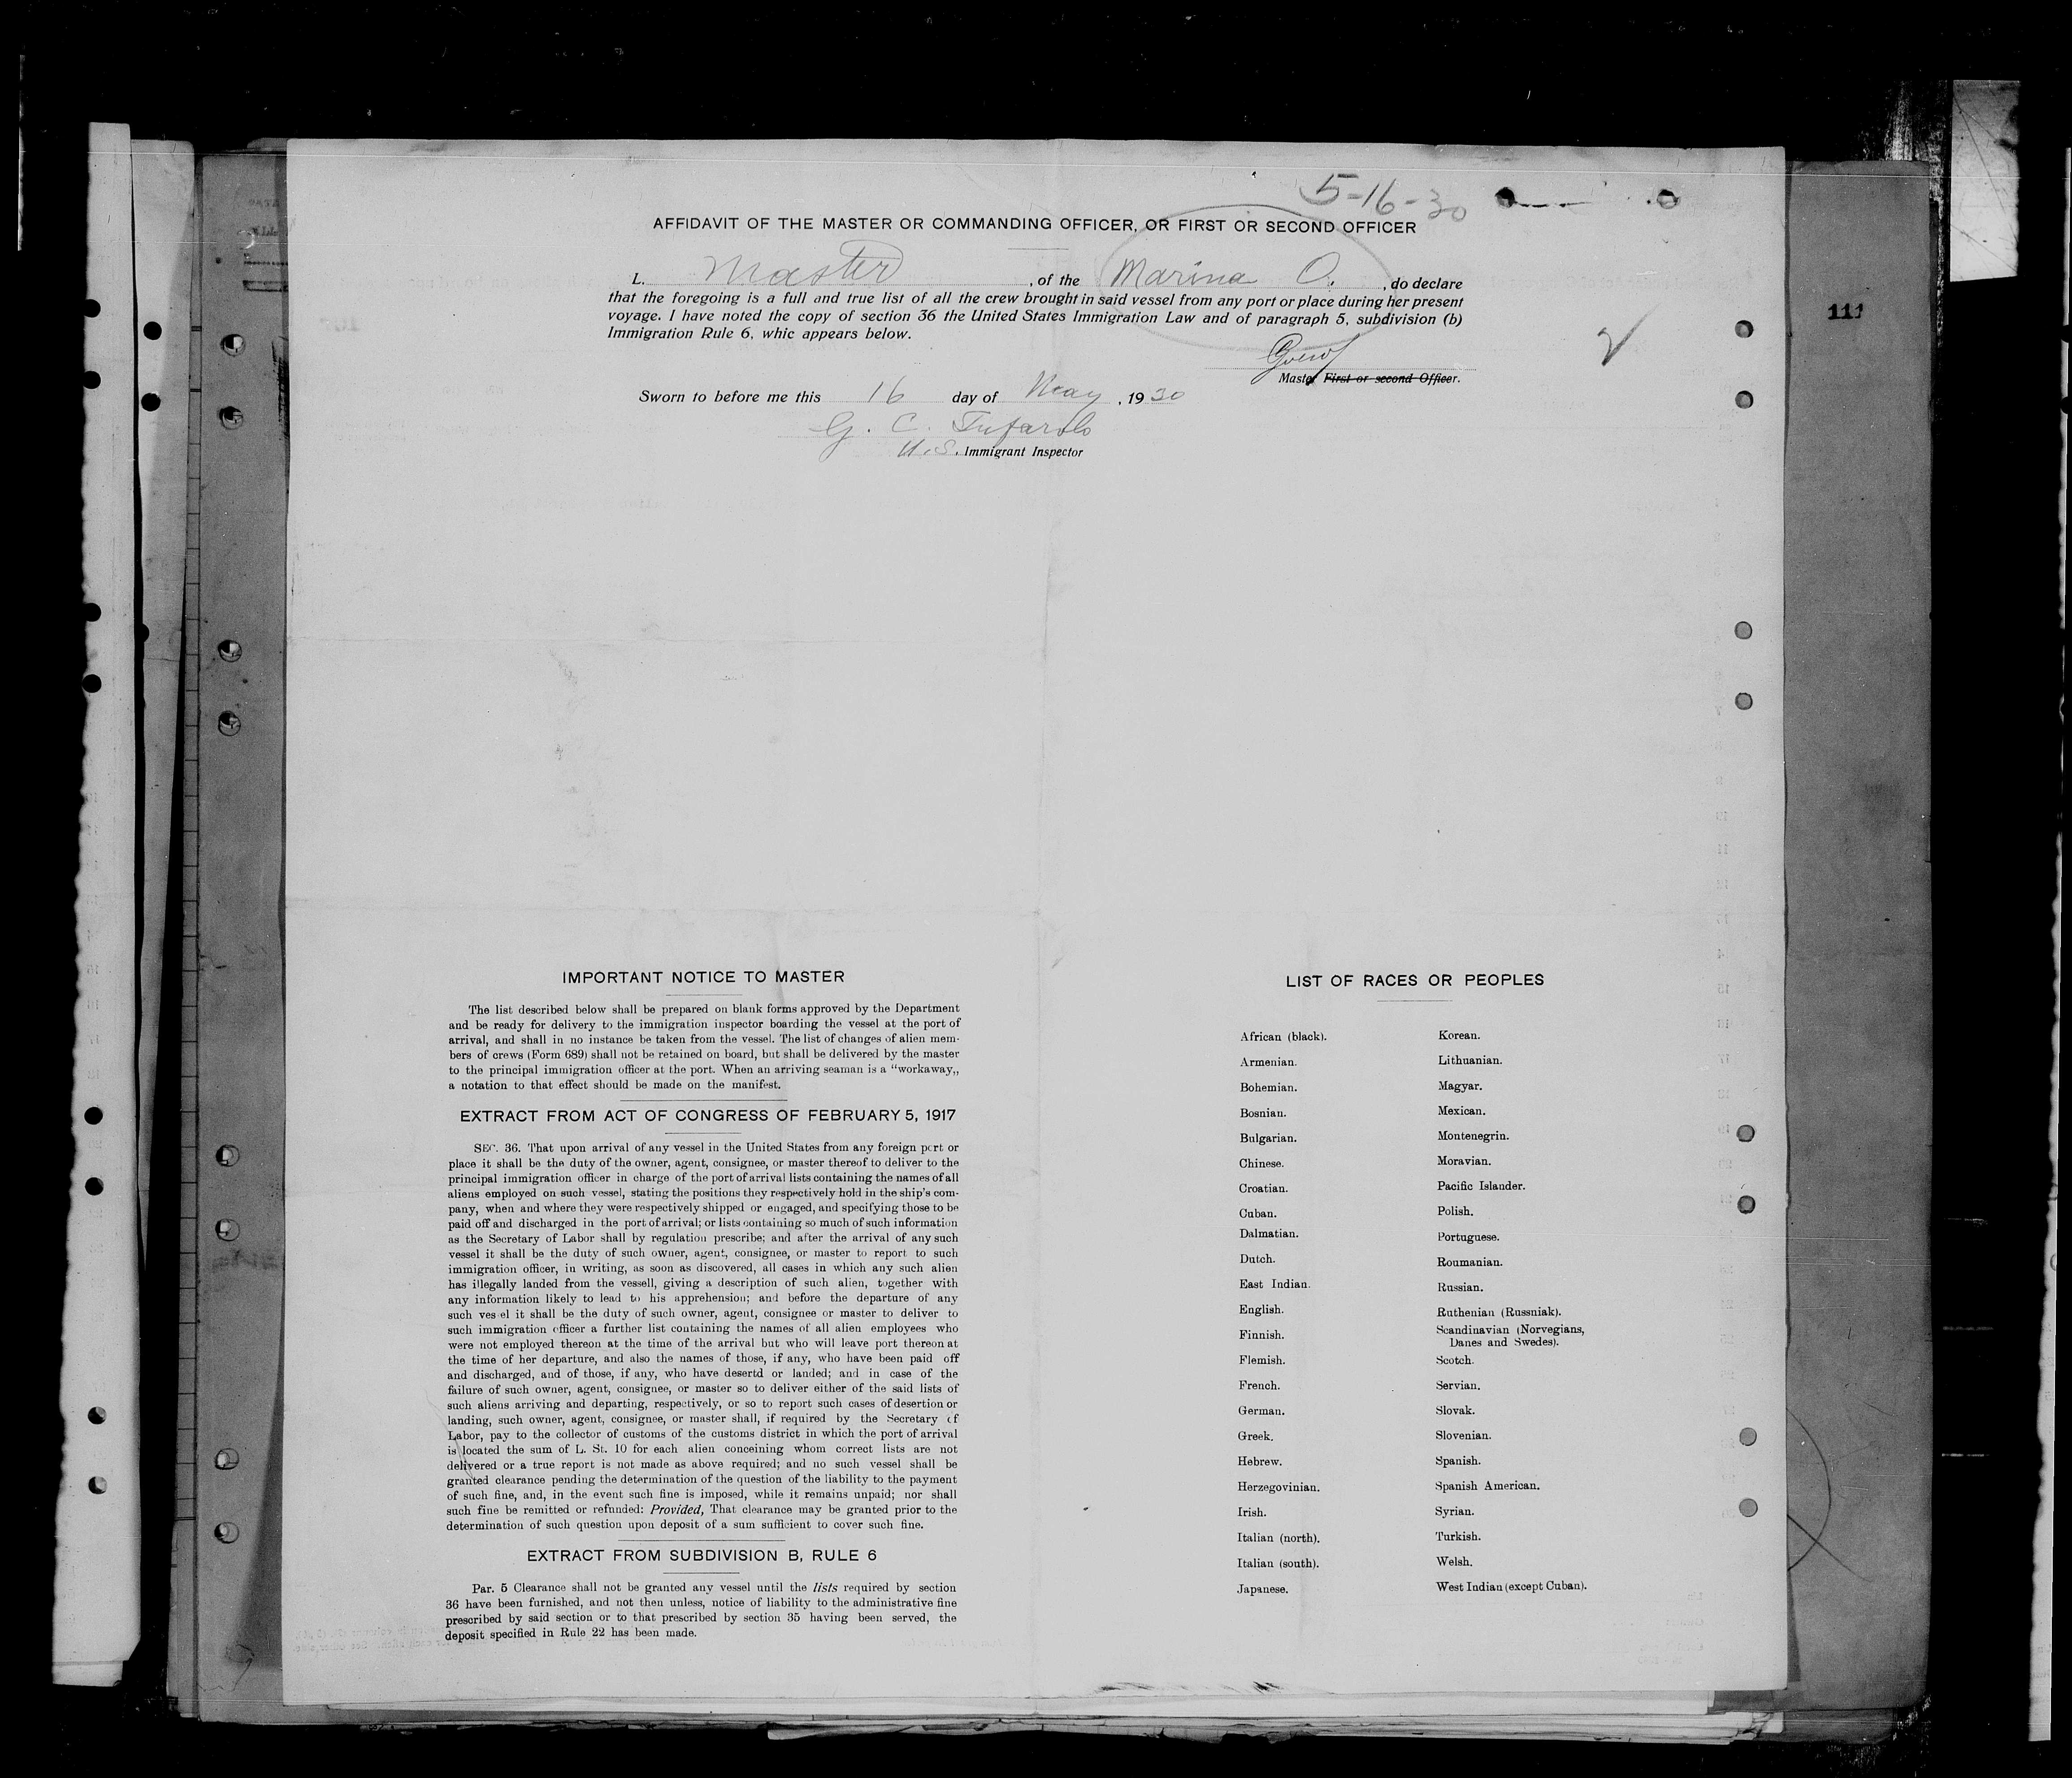 5-16-30
AFFIDAVIT OF THE MASTER OR COMMANDING OFFICER, OR FIRST OR SECOND OFFICER
I. Master , of the Marina O. , do declare
that the foregoing is a full and true list of all the crew brought in said vessel from any port or place during her present
voyage. I have noted the copy of section 36 the United States Immigration Law and of paragraph 5, subdivision (b)
Immigration Rule 6, whic appears below.
111
Master First or second Officer.
Sworn to before me this 16 day of May , 1930
G. C. Tufarolo
U.S. Immigrant Inspector
IMPORTANT NOTICE TO MASTER
The list described below shall be prepared on blank forms approved by the Department
and be ready for delivery to the immigration inspector boarding the vessel at the port of
arrival, and shall in no instance be taken from the vessel. The list of changes of alien mem-
bers of crews (Form 689) shall not be retained on board, but shall be delivered by the master
to the principal immigration officer at the port. When an arriving seaman is a "workaway,,
a notation to that effect should be made on the manifest.
EXTRACT FROM ACT OF CONGRESS OF FEBRUARY 5, 1917
SEC. 36. That upon arrival of any vessel in the United States from any foreign port or
place it shall be the duty of the owner, agent, consignee, or master thereof to deliver to the
principal immigration officer in charge of the port of arrival lists containing the names of all
aliens employed on such vessel, stating the positions they respectively hold in the ship's com-
pany, when and where they were respectively shipped or engaged, and specifying those to be
paid off and discharged in the port of arrival; or lists containing so much of such information
as the Secretary of Labor shall by regulation prescribe; and after the arrival of any such
vessel it shall be the duty of such owner, agent, consignee, or master to report to such
immigration officer, in writing, as soon as discovered, all cases in which any such alien
has illegally landed from the vessell, giving a description of such alien, together with
any information likely to lead to his apprehension; and before the departure of any
such ves el it shall be the duty of such owner, agent, consignee or master to deliver to
such immigration officer a further list containing the names of all alien employees who
were not employed thereon at the time of the arrival but who will leave port thereon at
the time of her departure, and also the names of those, if any, who have been paid off
and discharged, and of those, if any, who have desertd or landed; and in case of the
failure of such owner, agent, consignee, or master so to deliver either of the said lists of
such aliens arriving and departing, respectively, or so to report such cases of desertion or
landing, such owner, agent, consignee, or master shall, if required by the Secretary of
Labor, pay to the collector of customs of the customs district in which the port of arrival
is located the sum of L. St. 10 for each alien conceining whom correct lists are not
delivered or a true report is not made as above required; and no such vessel shall be
granted clearance pending the determination of the question of the liability to the payment
of such fine, and, in the event such fine is imposed, while it remains unpaid; nor shall
such fine be remitted or refunded: Provided, That clearance may be granted prior to the
determination of such question upon deposit of a sum sufficient to cover such fine.
EXTRACT FROM SUBDIVISION B, RULE 6
Par. 5 Clearance shall not be granted any vessel until the lists required by section
36 have been furnished, and not then unless, notice of liability to the administrative fine
prescribed by said section or to that prescribed by section 35 having been served, the
deposit specified in Rule 22 has been made.
LIST OF RACES OR PEOPLES
African (black).
Armenian.
Bohemian.
Bosnian.
Bulgarian.
Chinese.
Croatian.
Cuban.
Dalmatian.
Dutch.
East Indian.
English.
Finnish.
Flemish.
French.
German.
Greek.
Hebrew.
Herzegovinian.
Irish.
Italian (north).
Italian (south).
Japanese.
Korean.
Lithuanian.
Magyar.
Mexican.
Montenegrin.
Moravian.
Pacific Islander.
Polish.
Portuguese.
Roumanian.
Russian.
Ruthenian (Russniak).
Scandinavian (Norvegians,
Danes and Swedes).
Scotch.
Servian.
Slovak.
Slovenian.
Spanish.
Spanish American.
Syrian.
Turkish.
Welsh.
West Indian (except Cuban).